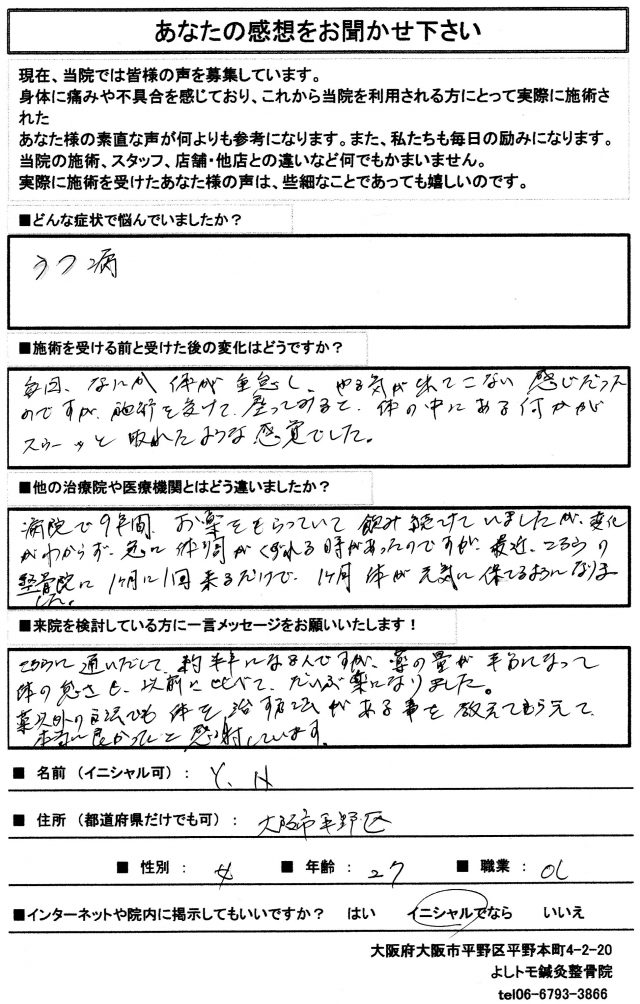 あなたの感想をお聞かせ下さい
現在、当院では皆様の声を募集しています。
身体に痛みや不具合を感じており、これから当院を利用される方にとって実際に施術さ
れた
あなた様の素直な声が何よりも参考になります。また、私たちも毎日の励みになります。
当院の施術、スタッフ、店舗・他店との違いなど何でもかまいません。
実際に施術を受けたあなた様の声は、些細なことであっても嬉しいのです。
■どんな症状で悩んでいましたか？
うつ病
■施術を受ける前と受けた後の変化はどうですか？
毎回、なにか体が重怠く、やる気が出てこない感じだった
のですが、施術を受けて、座ってみると、体の中にある何かが
スゥーッと取れたような感覚でした。
■他の治療院や医療機関とはどう違いましたか？
病院で9年間、お薬をもらっていて飲み続けていましたが、変化
がわからず、急に体調がくずれる時があったのですが、最近、こちらの
整骨院に1ヶ月に1回来るだけで、1ヶ月体が元気に保てるようになりま
した。
■来院を検討している方に一言メッセージをお願いいたします！
こちらに通いだして、約半年になるんですが、薬の量が半分になって
体の怠さも、以前と比べて、だいぶ楽になりました。
薬以外の方法でも体を治す方法がある事を教えてもらえて、
本当に良かったと感謝しています。
■ 名前（イニシャル可）： Y. H
■ 住所（都道府県だけでも可）： 大阪市平野区
■ 性別： 女 ■ 年齢： 27 ■ 職業： OL
■インターネットや院内に掲示してもいいですか？ はい イニシャルでなら いいえ
大阪府大阪市平野区平野本町4-2-20
よしトモ鍼灸整骨院
tel06-6793-3866